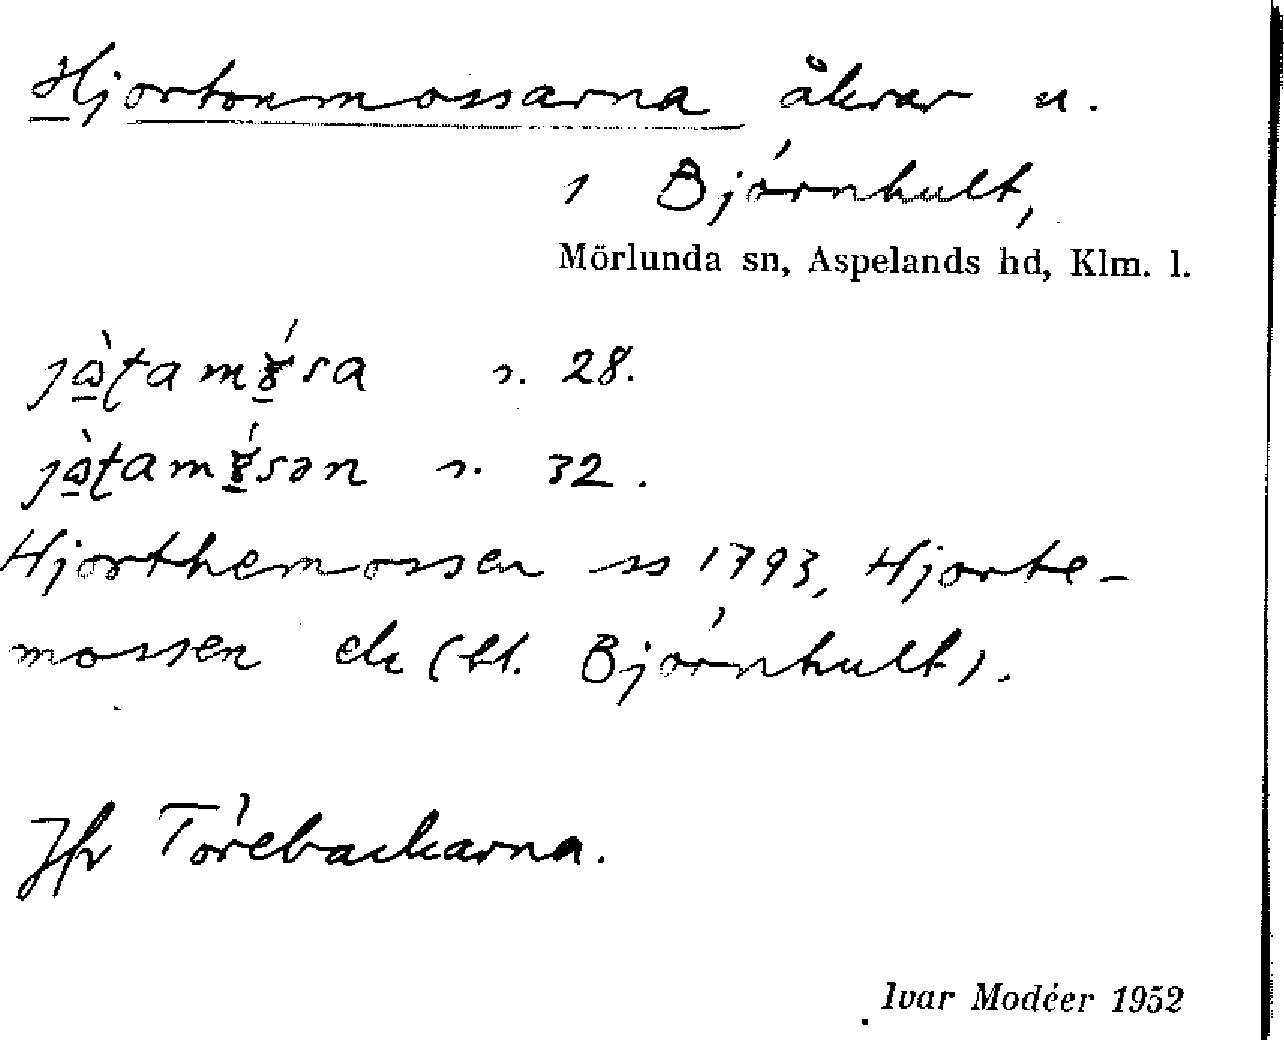 Hjortonmossarna åkrar u.
1 Björnhult,
Mörlunda sn, Aspelands hd, Klm. l.
s. 28.
s. 32.
Hjorthemossen ss 1793, Hjorte-
mossen ek (bl. Björnhult).
Jfr Törebackarna.
Ivar Modéer 1952